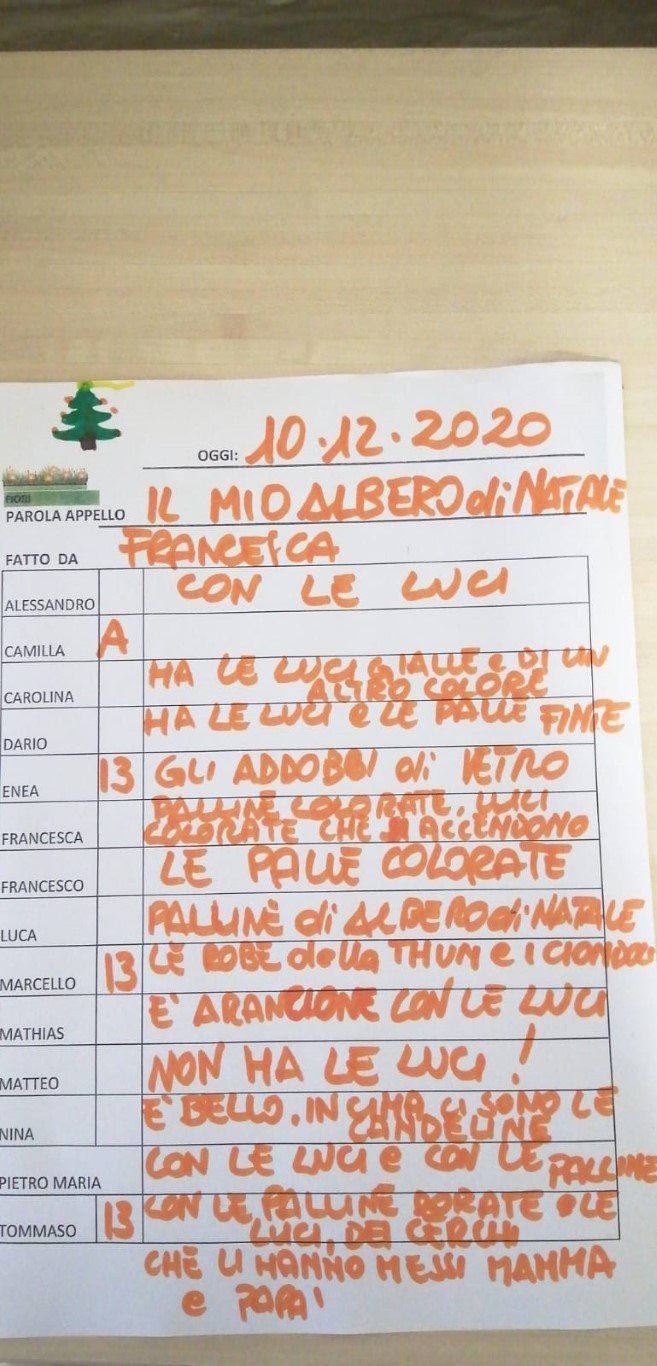 OGGI: 10.12.2020
FIORI
PAROLA APPELLO IL MIO ALBERO di NATALE
FATTO DA FRANCESCA
ALESSANDRO CON LE LUCI
CAMILLA A
CAROLINA HA LE LUCI GIALLE e DI UN
ALTRO COLORE
DARIO HA LE LUCI e LE PALLE FINTE
ENEA 13 GLI ADDOBBI di IETRO
FRANCESCA PALLINE COLORATE, LUCI
COLORATE CHE SI ACCENDONO
FRANCESCO LE PALLE COLORATE
LUCA PALLINE di ALBERO di NATALE
MARCELLO 13 LE ROBE della THUN e I CIONDOLI
MATHIAS E' ARANCIONE CON LE LUCI
MATTEO NON HA LE LUCI!
NINA E' BELLO. IN CIMA CI SONO LE
CANDELINE
PIETRO MARIA CON LE LUCI e CON LE PALLINE
TOMMASO 13 CON LE PALLINE DORATE e LE
LUCI, DEI CERCHI
CHE LI HANNO MESSI MAMMA
e PAPA'